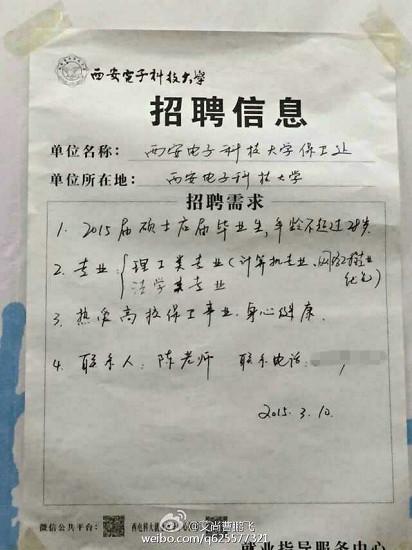 西安电子科技大学
招聘信息
单位名称：西安电子科技大学保卫处
单位所在地：西安电子科技大学
招聘需求
1. 2015届硕士应届毕业生，年龄不超过28岁
2. 专业：理工类专业（计算机专业、网络专业
优先）
法学类专业
3. 热爱高校保卫事业，身心健康.
4. 联系人：陈老师 联系电话：
2015.3.10.
微信公共平台：
西电科大就业
@艾尚曹鹏飞
weibo.com/q625577321
就业指导服务中心